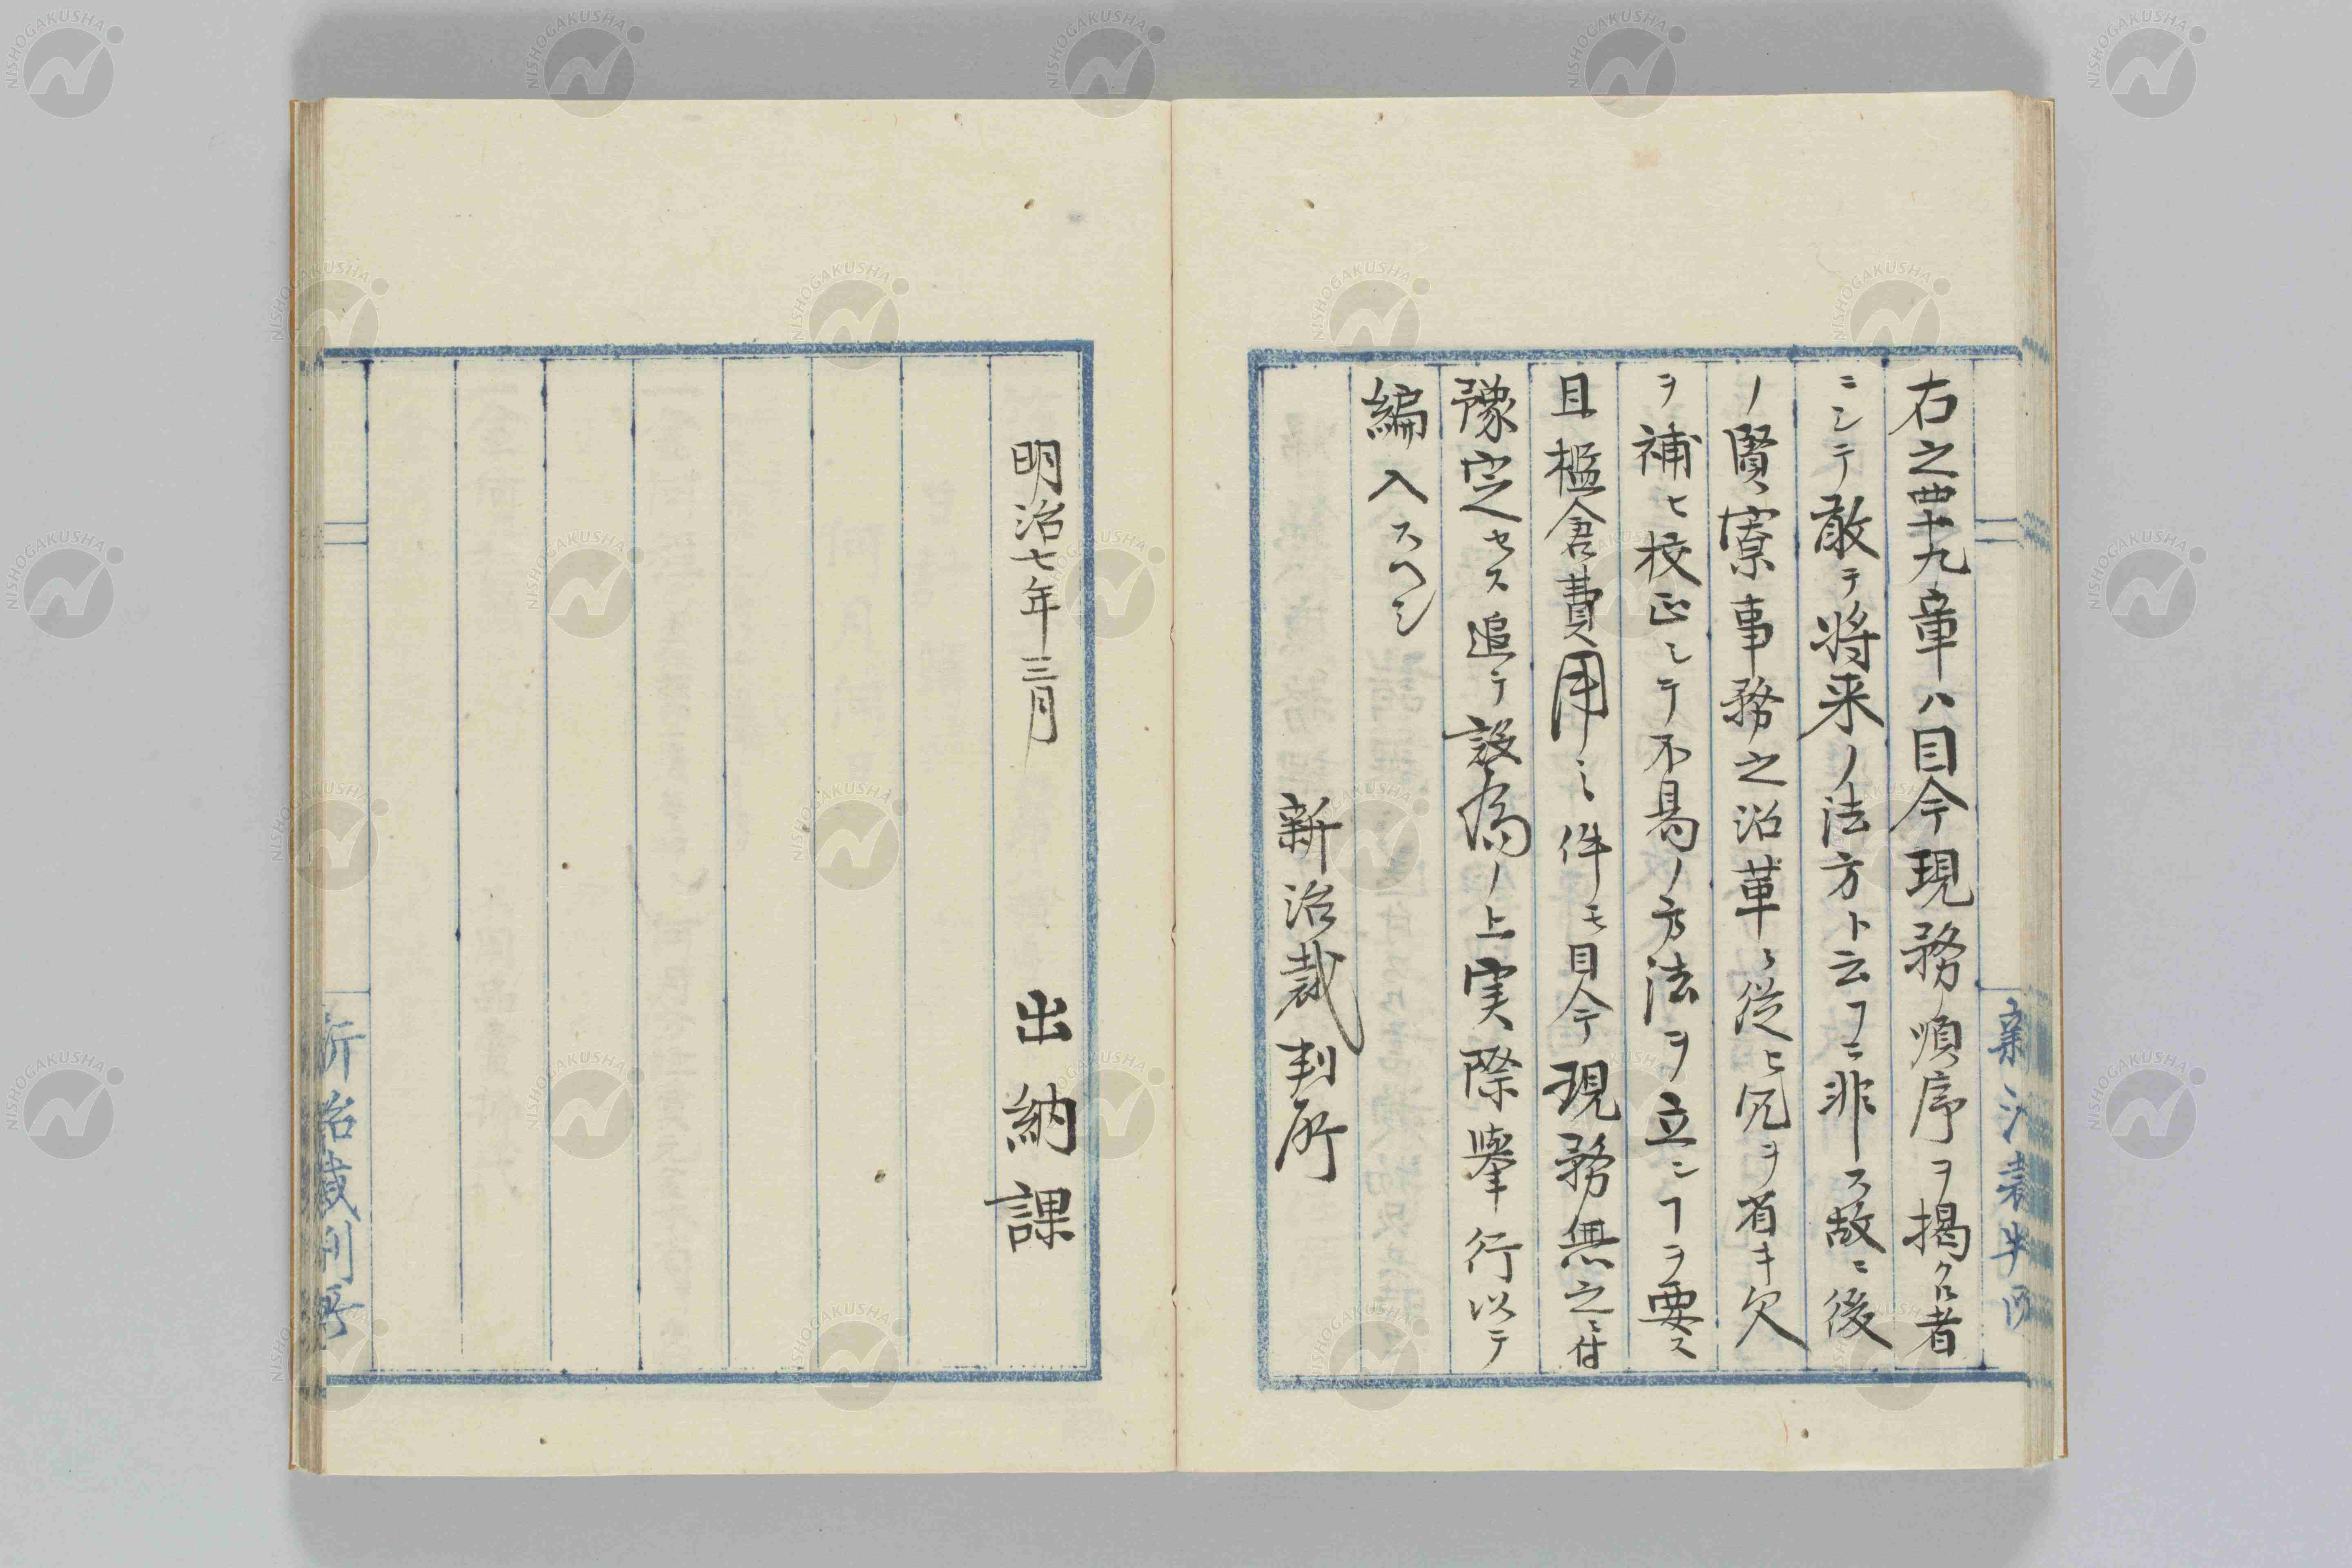 右之四十九章ハ目今現務順序ヲ掲クル者
ニシテ敢テ将来ノ法方ト云フニ非ス故ニ後
ノ賢ニ寮事務之沿革ニ従ヒ冗ヲ省キ欠
ヲ補ヒ校正シテ不易ノ方法ヲ立ンヿヲ要ス
且檻倉費用之件モ目今現務無之ニ付
豫定セス追テ設為ノ上実際挙行以テ
編入スヘシ
新治裁判所
明治七年三月
出納課
新治裁判所
NISHOGAKUSHA